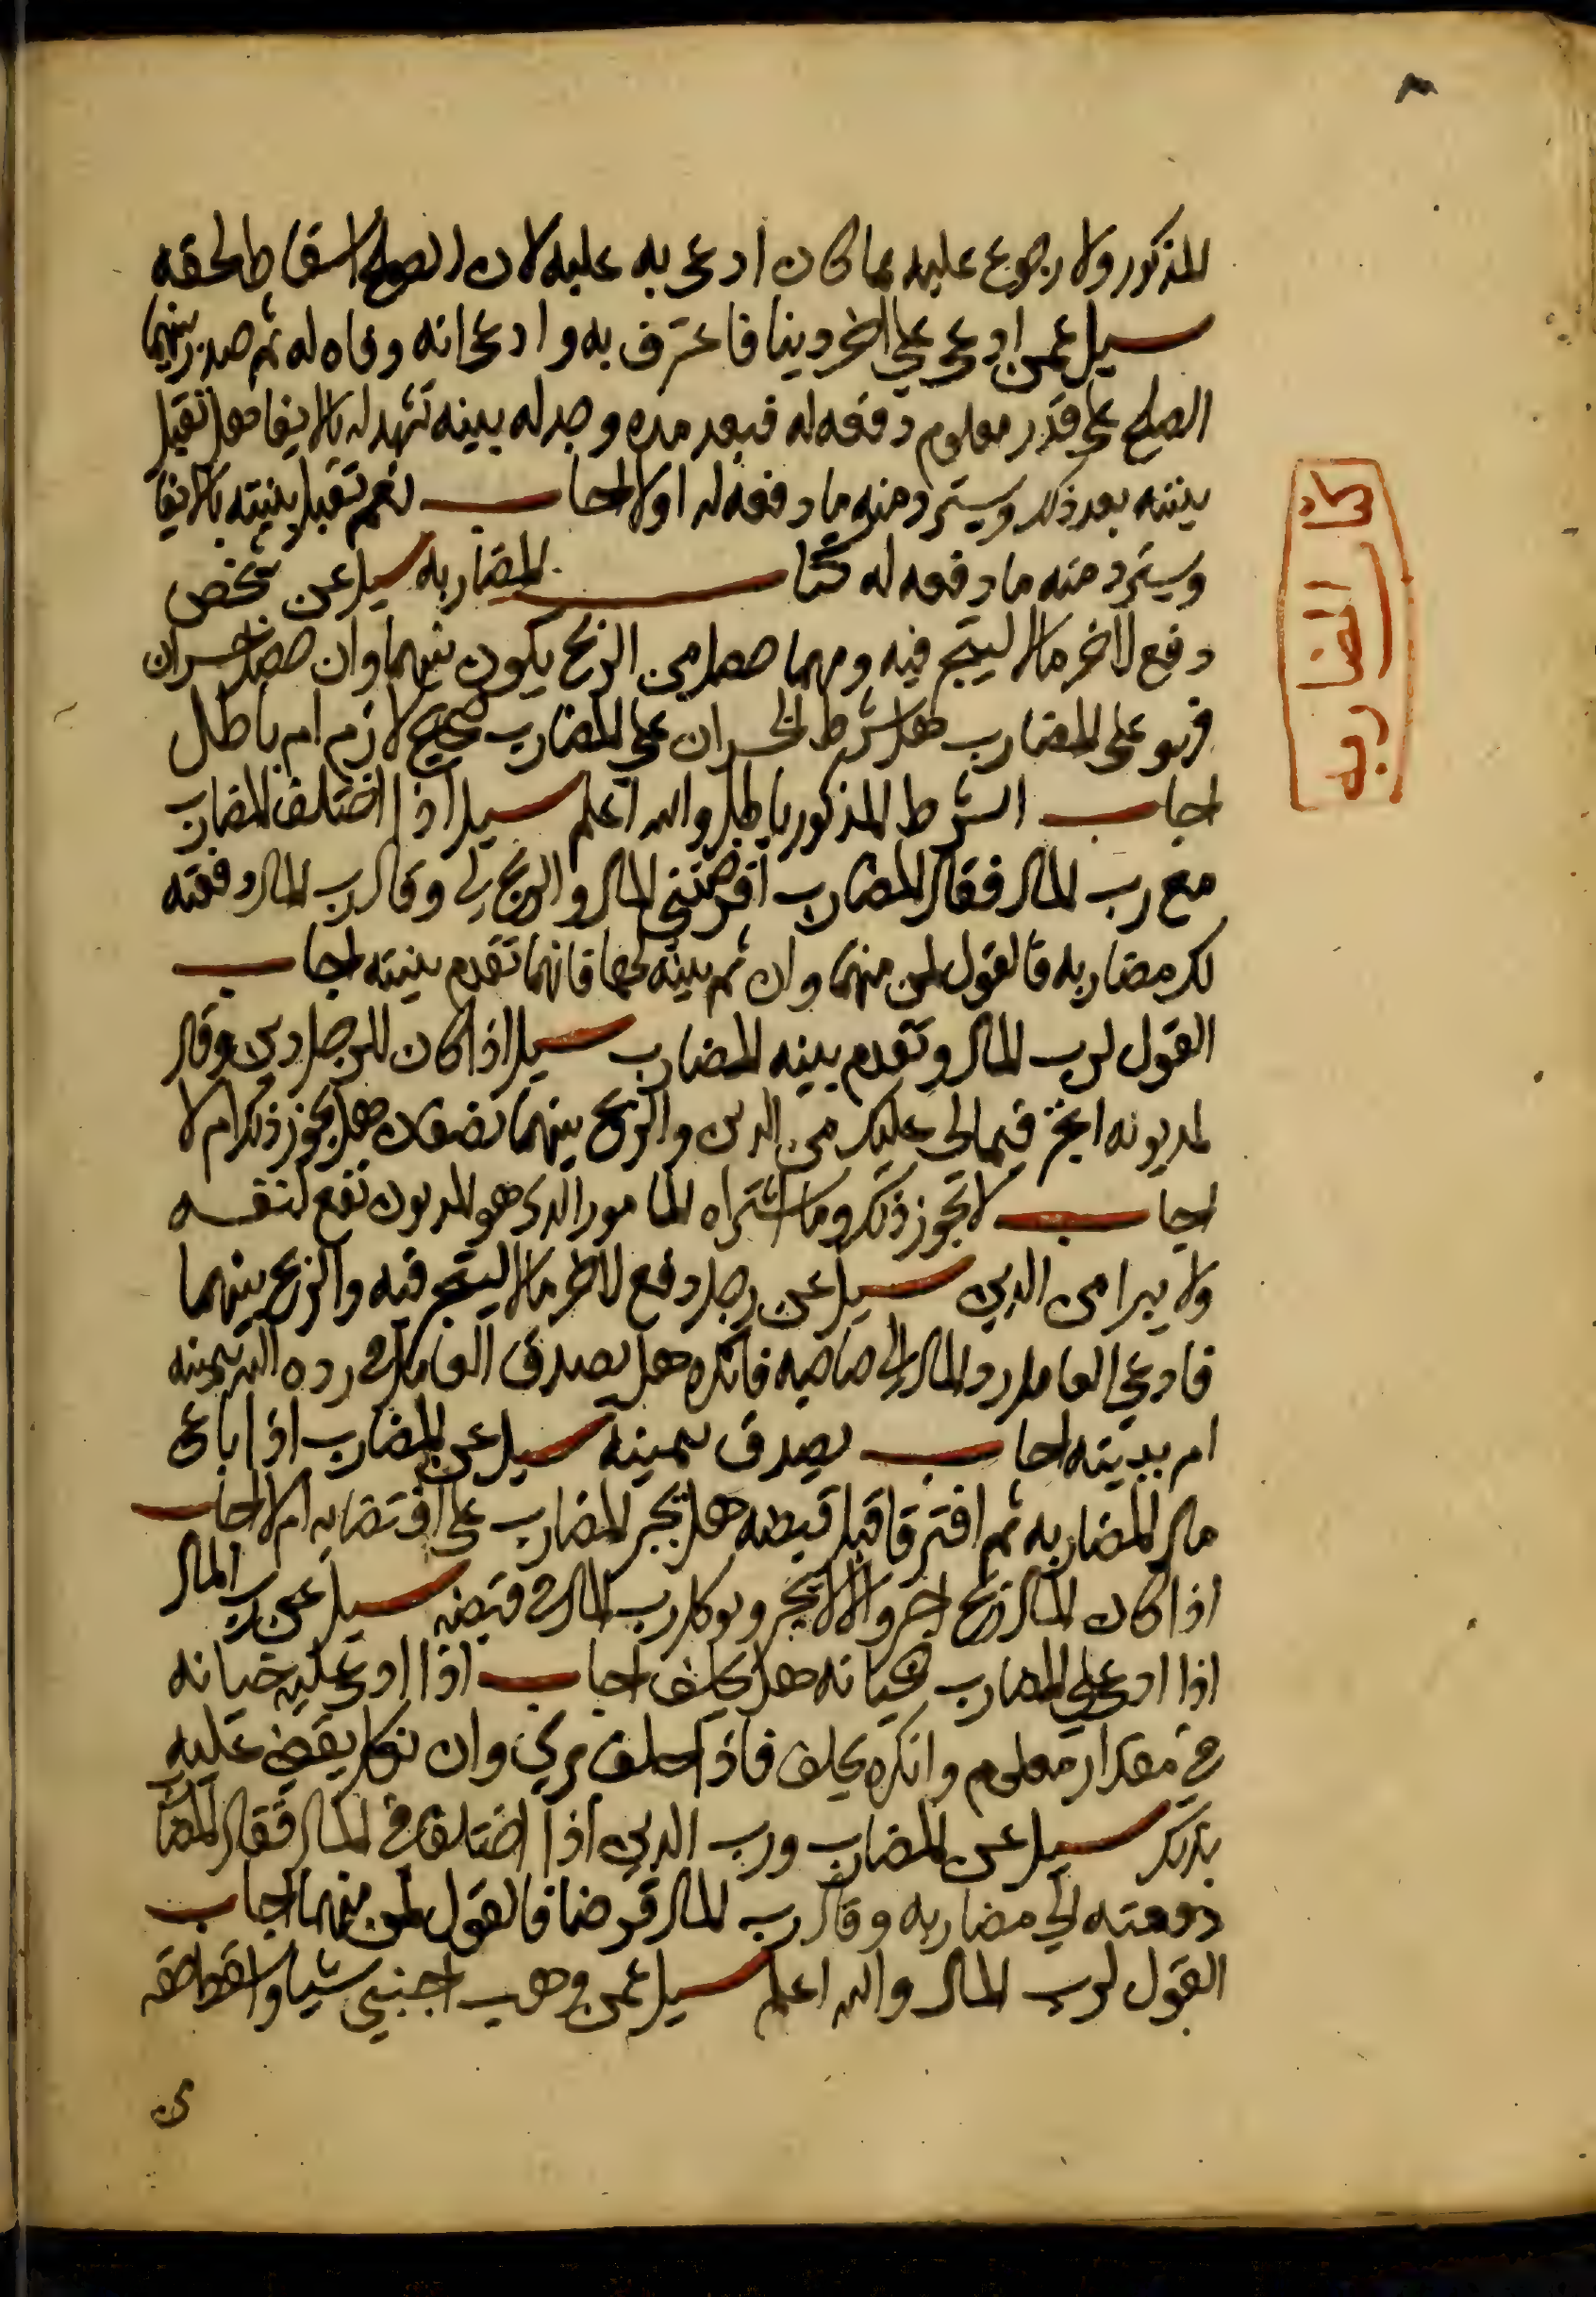 المذكور ولا رجوع عليه بما كان ادعى به عليه لان الصلح اسقاط لحقه
سيل عمن ادعى على اخر دينا فاعترف به وادعى انه وفاه له ثم صدر بينهما
الصلح على قدر معلوم دفعه له فبعد مده وجد له بينه تشهد له بالايفا فهل تقبل
بينته بعد ذلك ويسترد منه ما دفعه له اولا اجاب نعم تقبل بينته بالايفا
ويسترد منه ما دفعه له كتاب المضاربه سيل عن شخص
دفع لاخر مالا ليتجر فيه ومهما حصل من الربح يكون بينهما وان حصل خسران
فهو على المضارب هل شرط الخسران على المضارب صحيح لازم ام باطل
اجاب الشرط المذكور باطل والله اعلم سيل اذا اختلف المضارب
مع رب المال فقال المضارب اقرضتني المال والربح لي وقال رب المال دفعته
لك مضاربه فالقول لمن منهما وان ثم بينه لهما فانهما تقدم بينته اجاب
القول لرب المال وتقدم بينه المضارب سيل اذا كان للرجل دين وقال
لمديونه اتجر فيما لي عليك من الدين والربح بينهما نصفان هل يجوز ذلك ام لا
اجاب لا يجوز ذلك وما اشتراه المامور الذى هو المديون تقع لنفسه
ولا يبرا من الدين سيل عن رجل دفع لاخر مالا ليتجر فيه والربح بينهما
فادعى العامل رد المال الى صاحبه فانكره هل يصدق العامل في رده اليه بيمينه
ام ببينته اجاب يصدق بيمينه سيل عن المضارب اذا باع
مال المضاربه ثم افترقا قبل قبضه هل يجبر المضارب على اقتضايه ام لا اجاب
اذا كان المال ربح اجبر والا لا يجبر ويوكل رب المال في قبضه سيل عن رب المال
اذا ادعى على المضارب بخيانه هل يحلف اجاب اذا ادعى عليه خيانه
في مقدار معلوم وانكره يحلف فاذا حلف بري وان نكل يقضى عليه
بذلك سيل عن المضارب ورب الدين اذا اختلفا في المال فقال المضارب
دفعته الي مضاربه وقال رب المال قرضا فالقول لمن منهما اجاب
القول لرب المال والله اعلم سيل عمن وهب اجنبي شيا واسقط حقه
كتاب
المضاربه